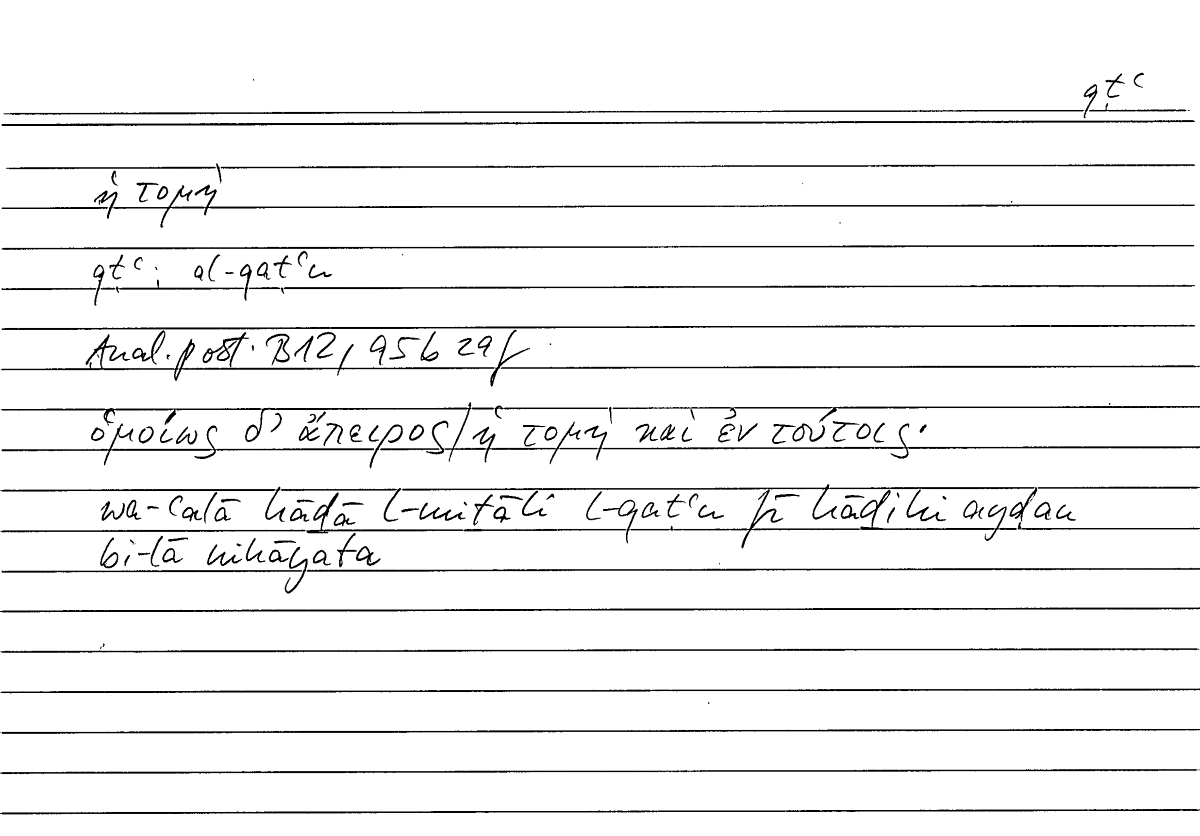 qṭʿ
ἡ τομὴ
qṭʿ; al-qaṭʿu
Anal. post. B12, 95b29f
ὁμοίως δ’ ἄπειρος/ἡ τομὴ καὶ ἐν τούτοις·
wa-ʿalā hāḏā l-miṯāli l-qaṭʿu fī hāḏihi ayḍan
bi-lā nihāyata